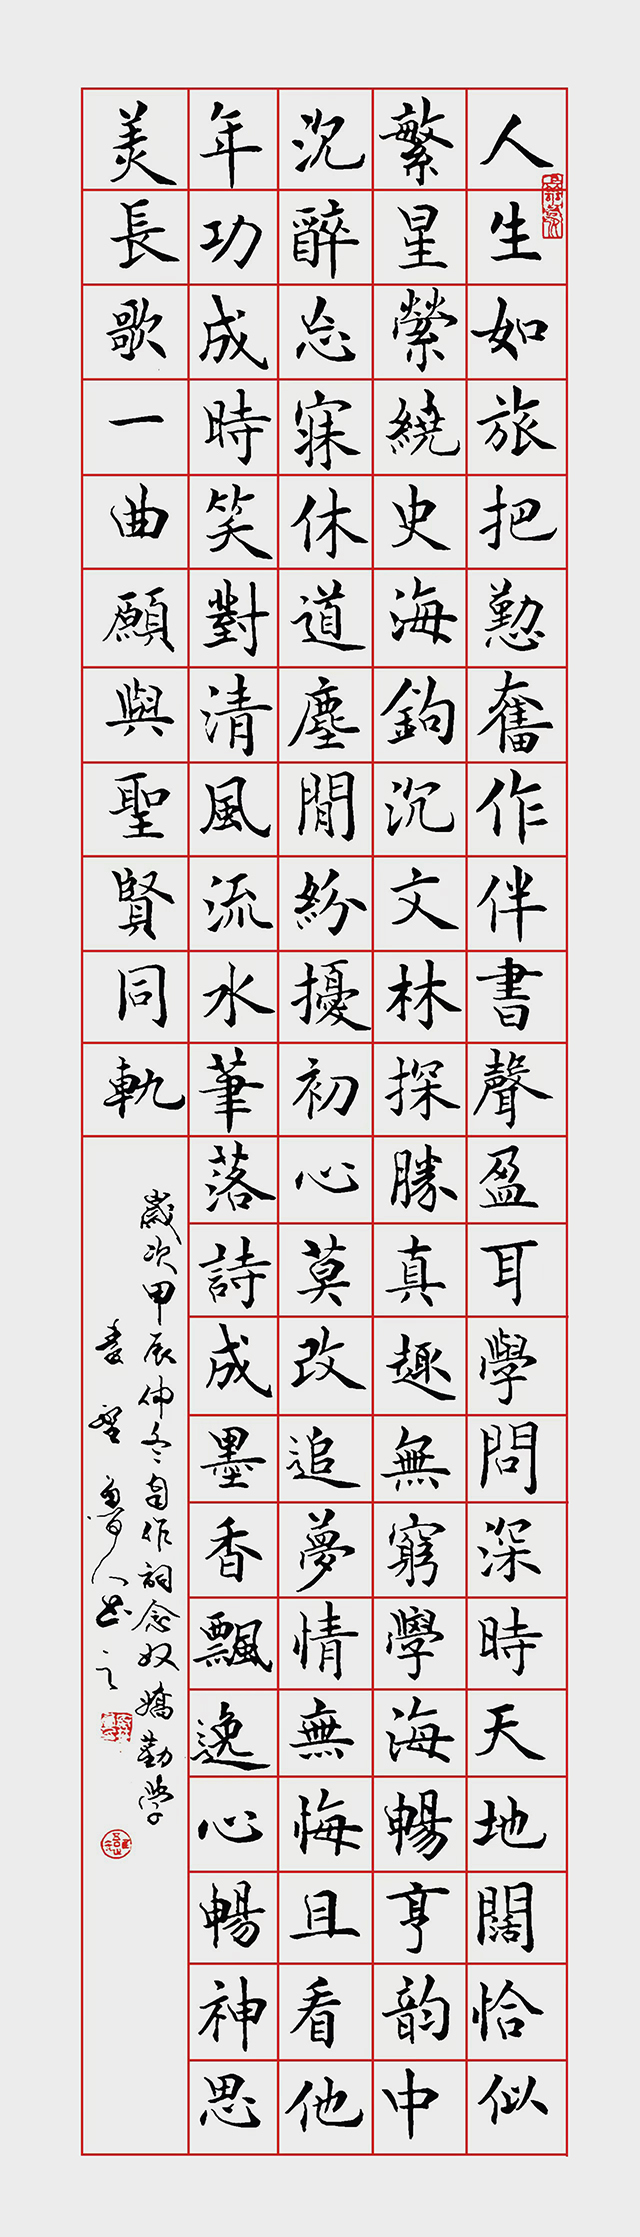 人生如旅把懃奮作伴書聲盈耳學問深時天地闊恰似
繁星縈繞史海鉤沉文林探勝真趣無窮學海暢亨韵中
沉醉忘寐休道塵閒紛擾初心莫改追夢情無悔且看他
年功成時笑對清風流水筆落詩成墨香飄逸心暢神思
美長歌一曲願與聖賢同軌
歲次甲辰仲冬自作詞念奴嬌勤學
魯人书之